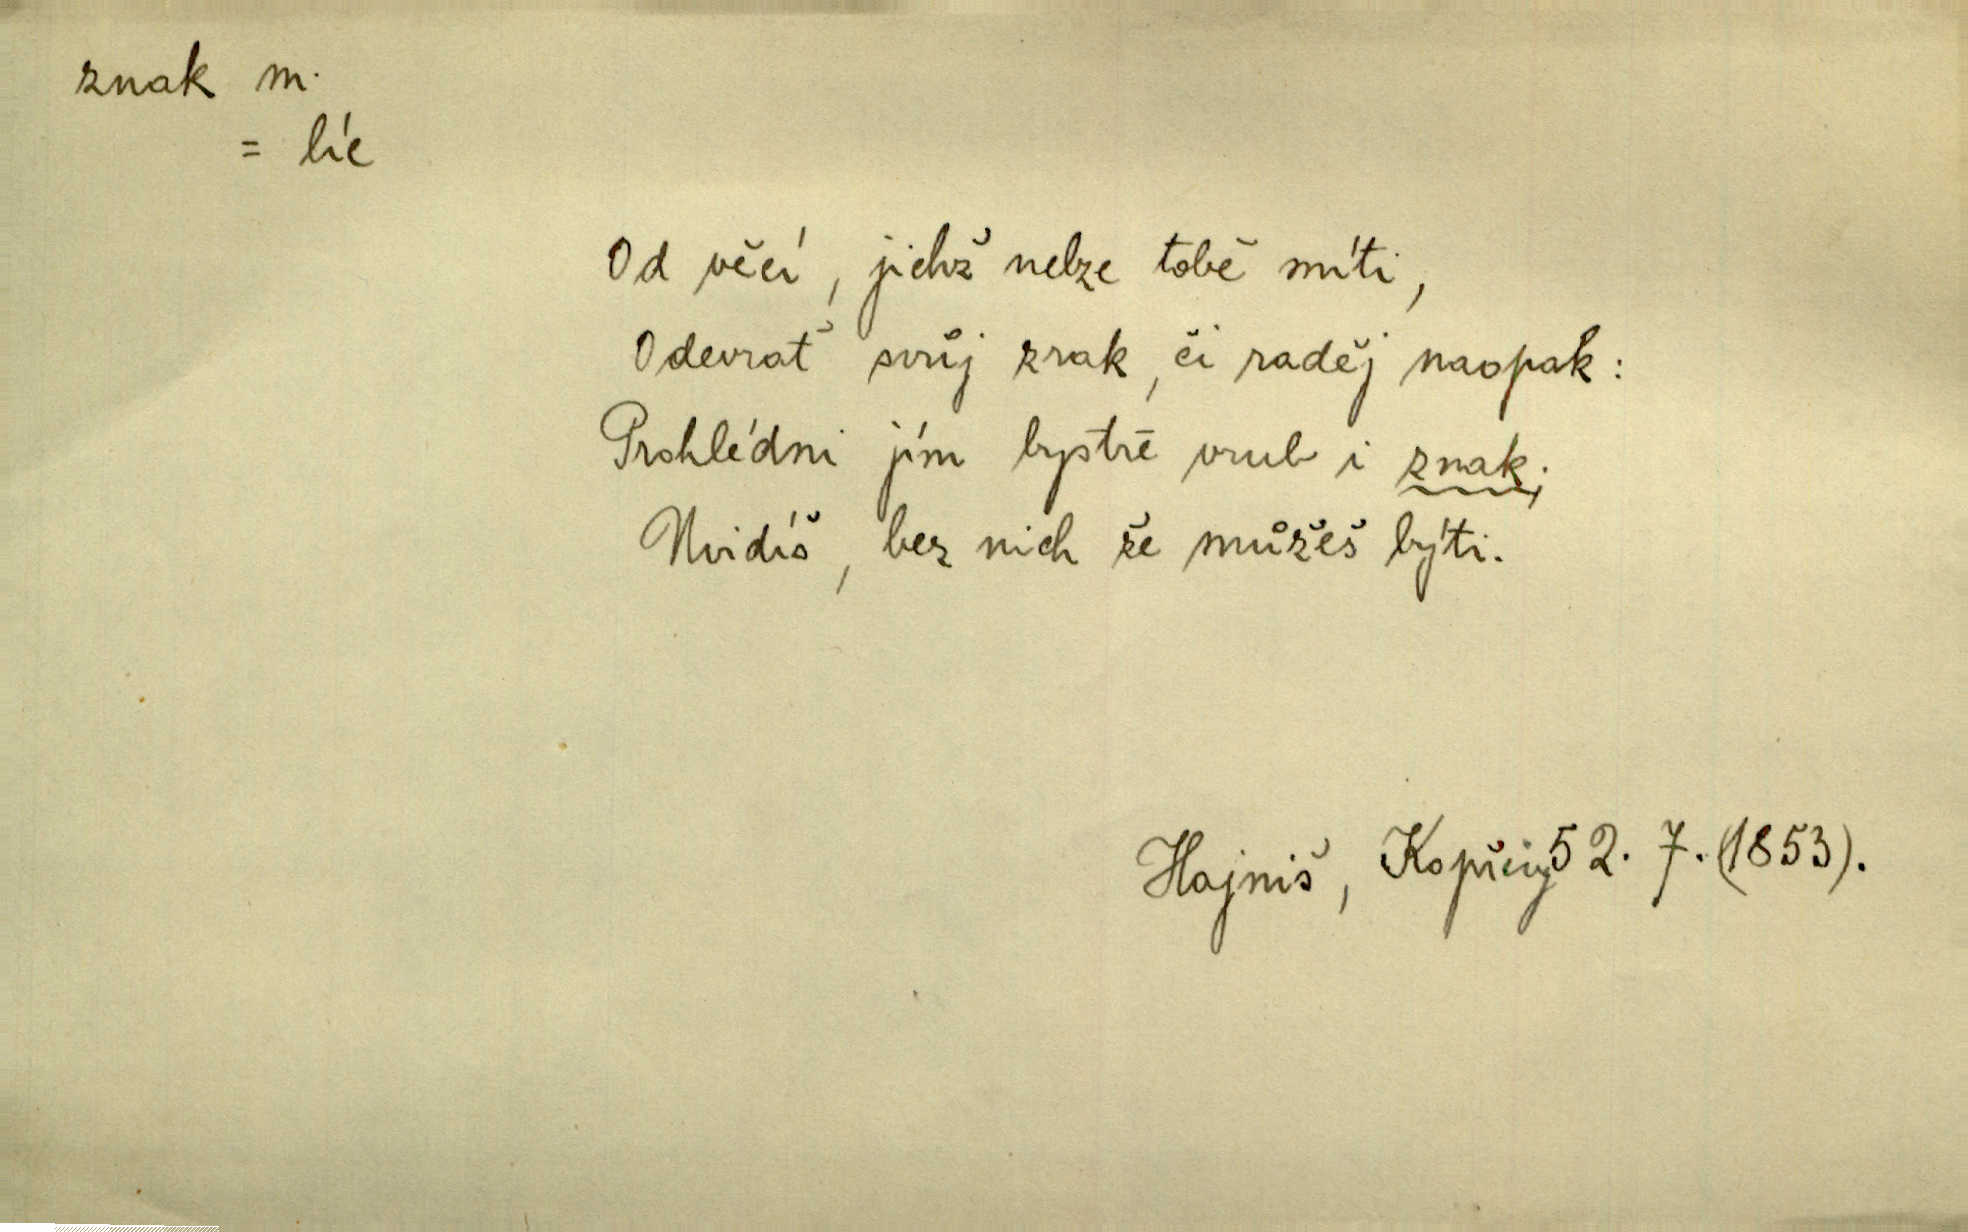 znak m.
= líc
Od věcí, jichž nelze tobě míti,
Odevrať svůj zrak, či raděj naopak:
Prohlédni jím bystře vrub i znak;
Uvidíš, bez nich že můžeš býti.
Hajniš, Kopřivy 52. 7. (1853).